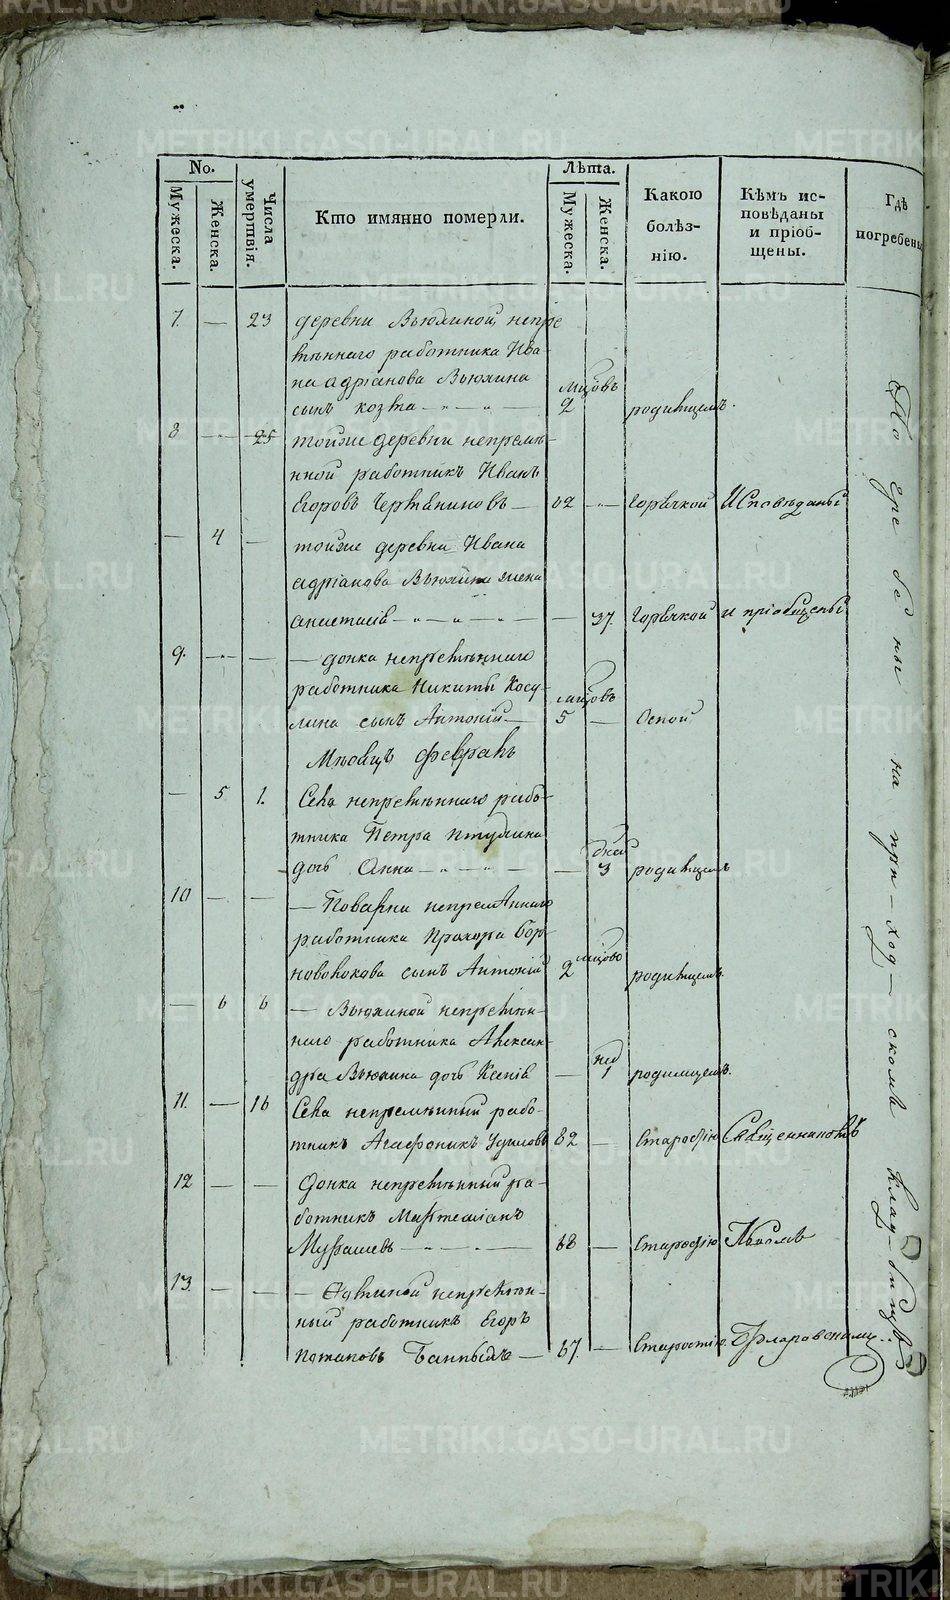 METRIKI.GASO-URAL.RU
No.
Лѣта.
Мужеска.
Женска.
Числа умертвія.
Кто имянно померли.
Мужеска.
Женска.
Какою болѣз-нію.
Кѣмъ ис-повѣданы и пріоб-щены.
Гдѣ погребены
7. — 23 деревни Вьюхиной непре
мѣннаго работника Ива-
на адріанова Вьюхина мцовъ
сынъ козма — 2 родимцемъ.
8 — 25 тойже деревни непремѣ-
нной работникъ Иванъ
Егоровъ — 62 — Горячкой Исповѣданы
— 4 — тойже деревни Ивана
адріанова Вьюхина жена
анастасія — — 37. Горячкой и пріобщены
9. — — — донка непремѣннаго
работника Никиты Косу- мцовъ
лина сынъ Антоній — 5 — Оспой
Мѣсяцъ февраль
— 5 1. Села непремѣннаго рабо-
тника Петра дней
дочь Анна — — 3 родимцемъ
10 — — — Поварни непремѣннаго
работника Прохора Бор-
новолокова сынъ Антоній 2 мцово родимцемъ
— 6 6 — Вьюхиной непремѣн-
наго работника Алексан- нед
дра Вьюхина дочь Ксенія — 1 родимцемъ.
11. — 16 Села непремѣнный рабо-
тникъ Агафоникъ 82 — Старостію Священникомъ
12 — — донка непремѣнный ра-
ботникъ
Мурашевъ — 68 — Старостію
13. — — — непремѣн-
ный работникъ Егоръ
Потаповъ — 67. — Старостію.
на при-ход-скомъ клад-бищѣ